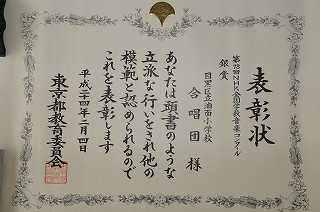 表彰状
第78回NHK全国学校音楽コンクール
銀賞
目黒区立油面小学校
合唱団 様
あなたは頭書のような
立派な行いをされ他の
模範と認められるので
これを表彰します
平成二十四年二月四日
東京都教育委員会